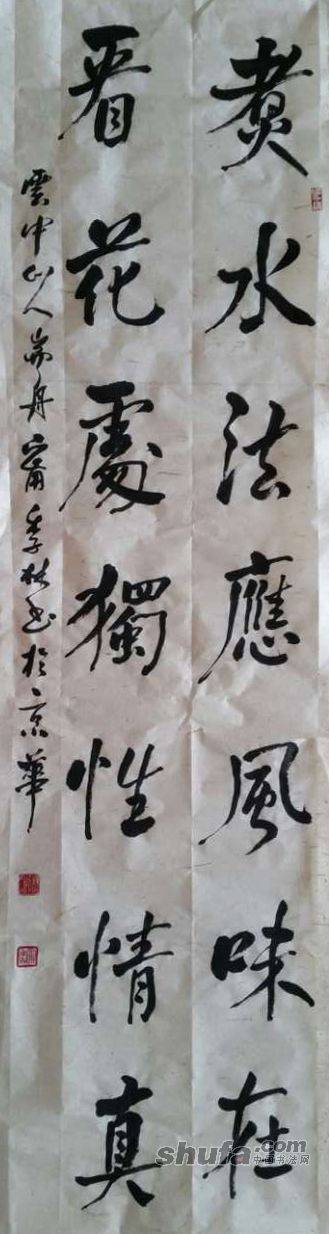 煮水法應風味在
看花處獨性情真
雲中山人嵩舟甯季林书於京華
shufa.com
中国书法网